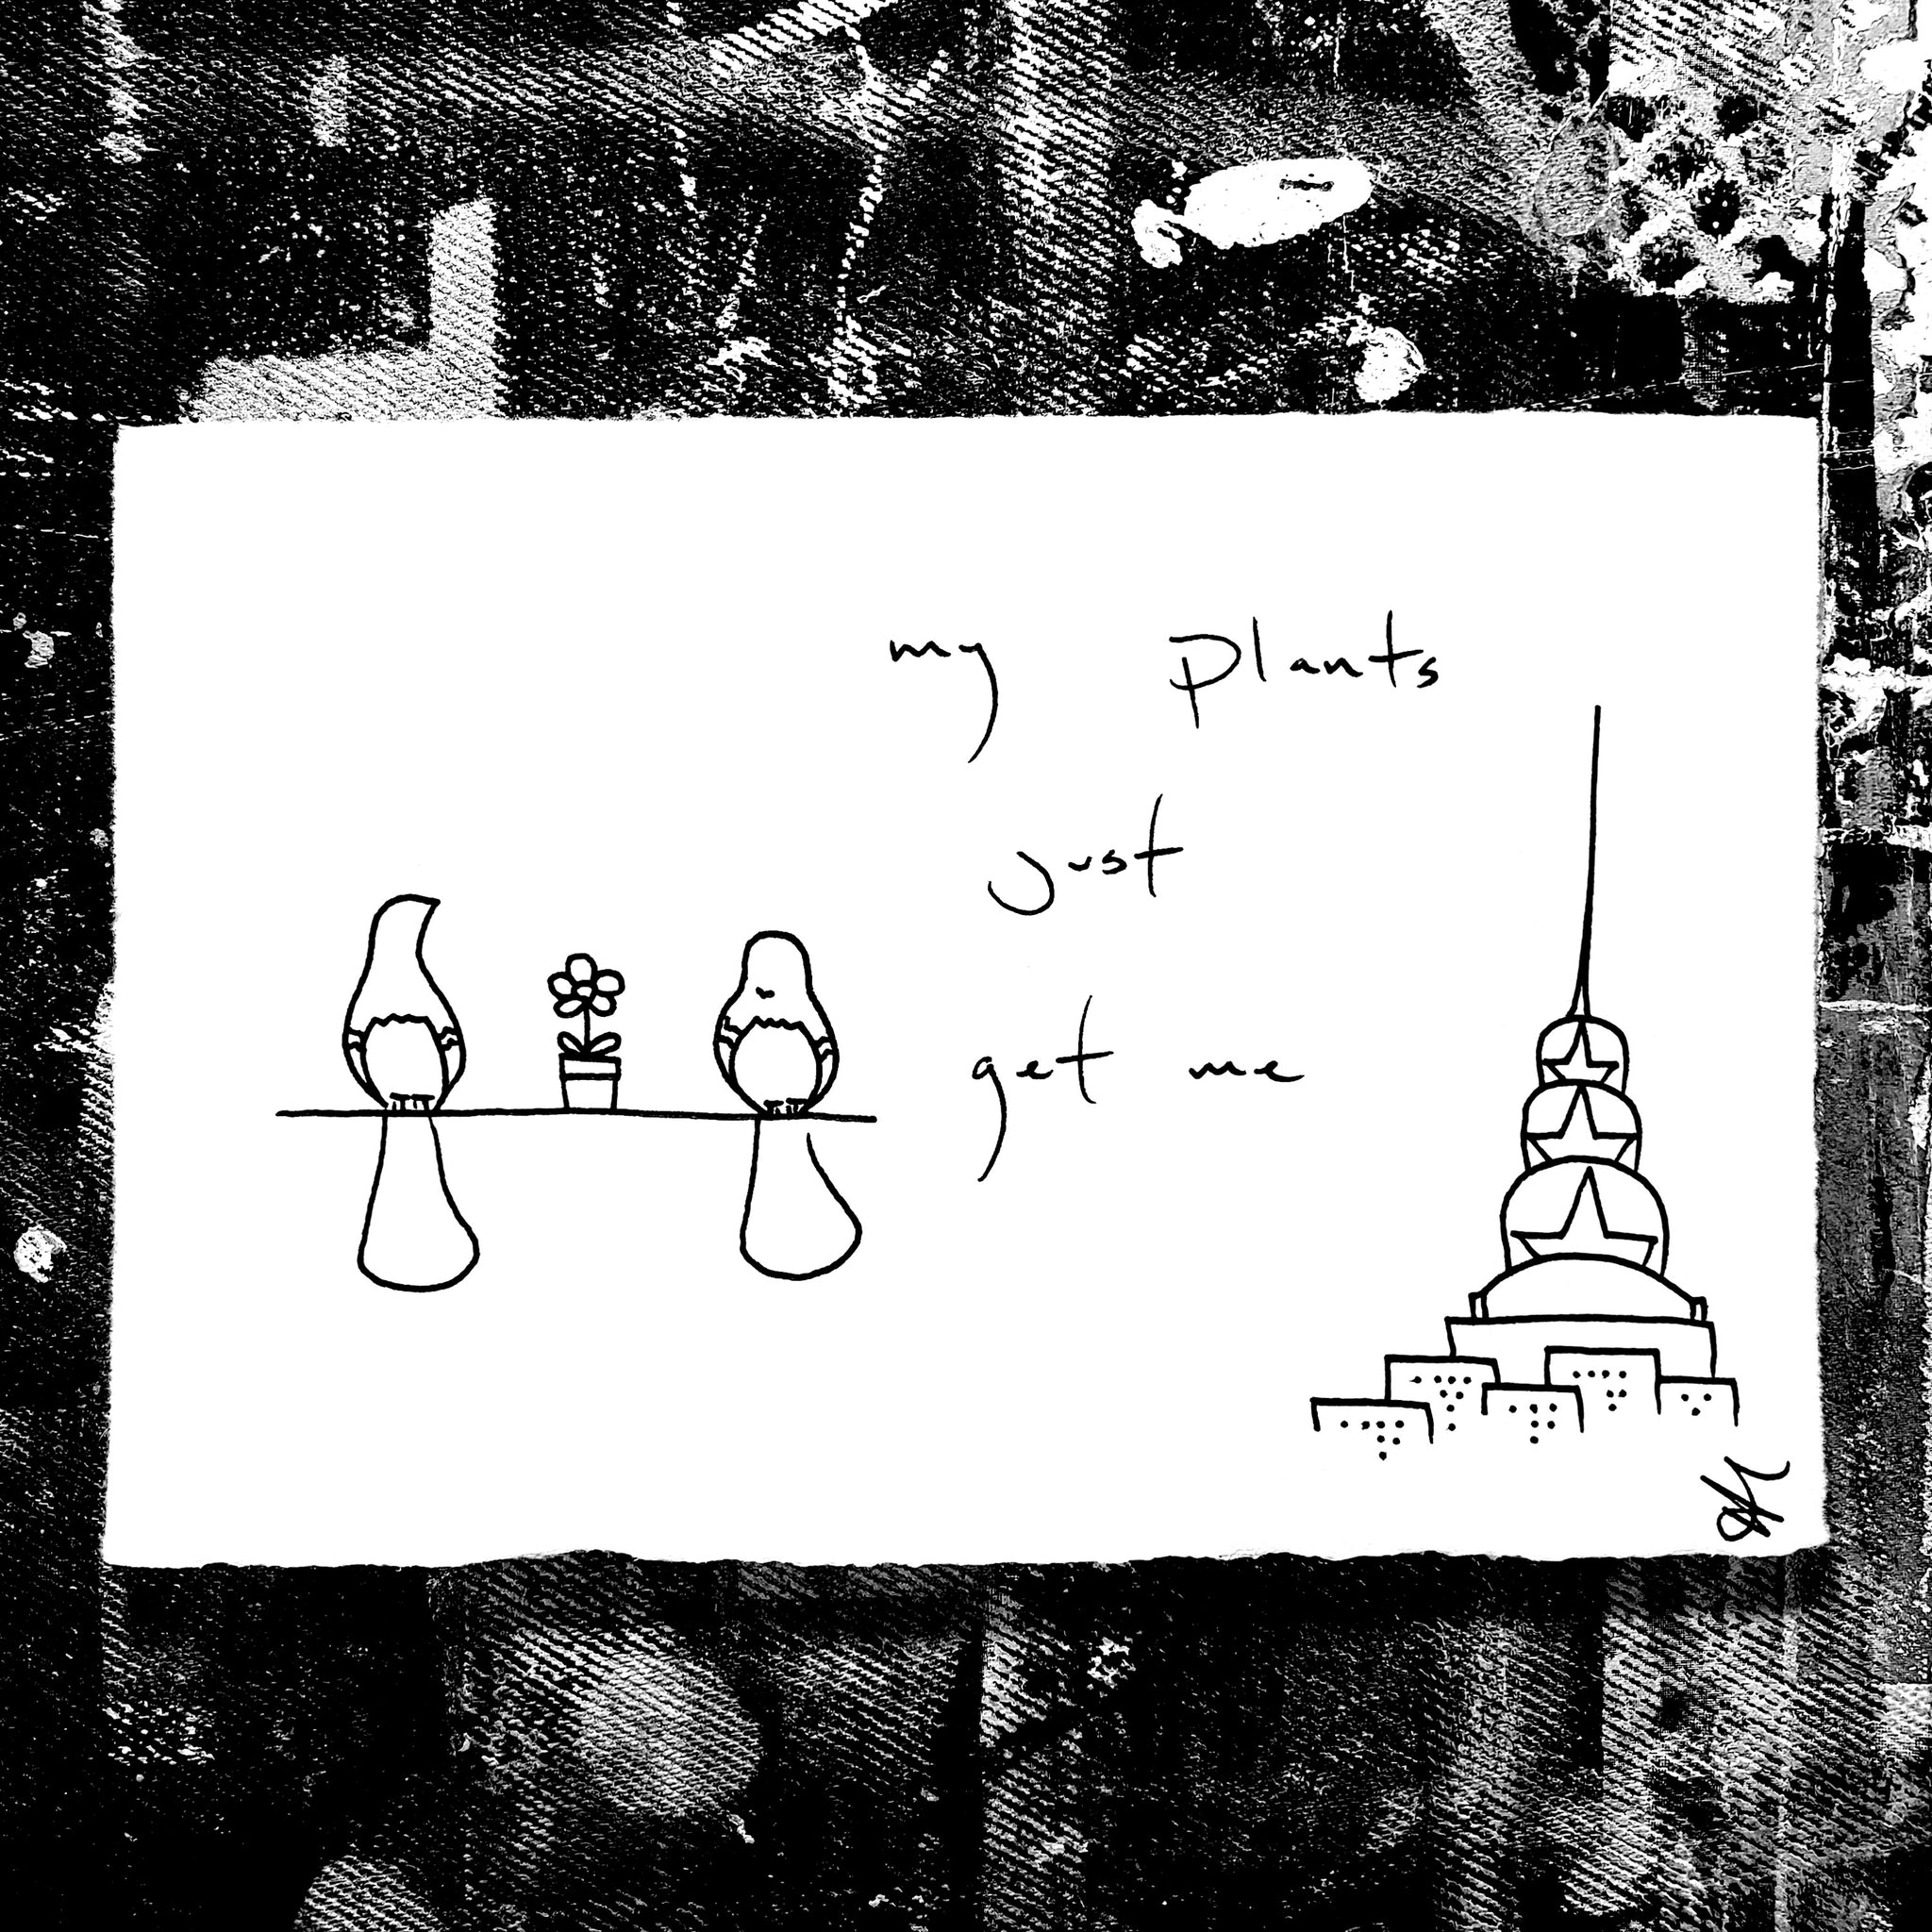 my plants
just
get me